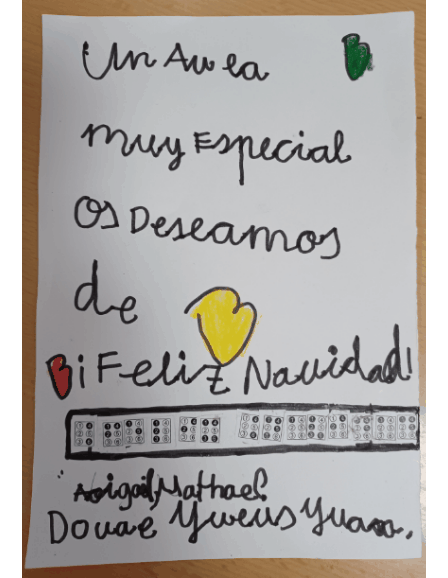 Un Aula
muy Especial
Os Deseamos
de
¡Feliz Navidad!
Abigail, Mathael
Douae